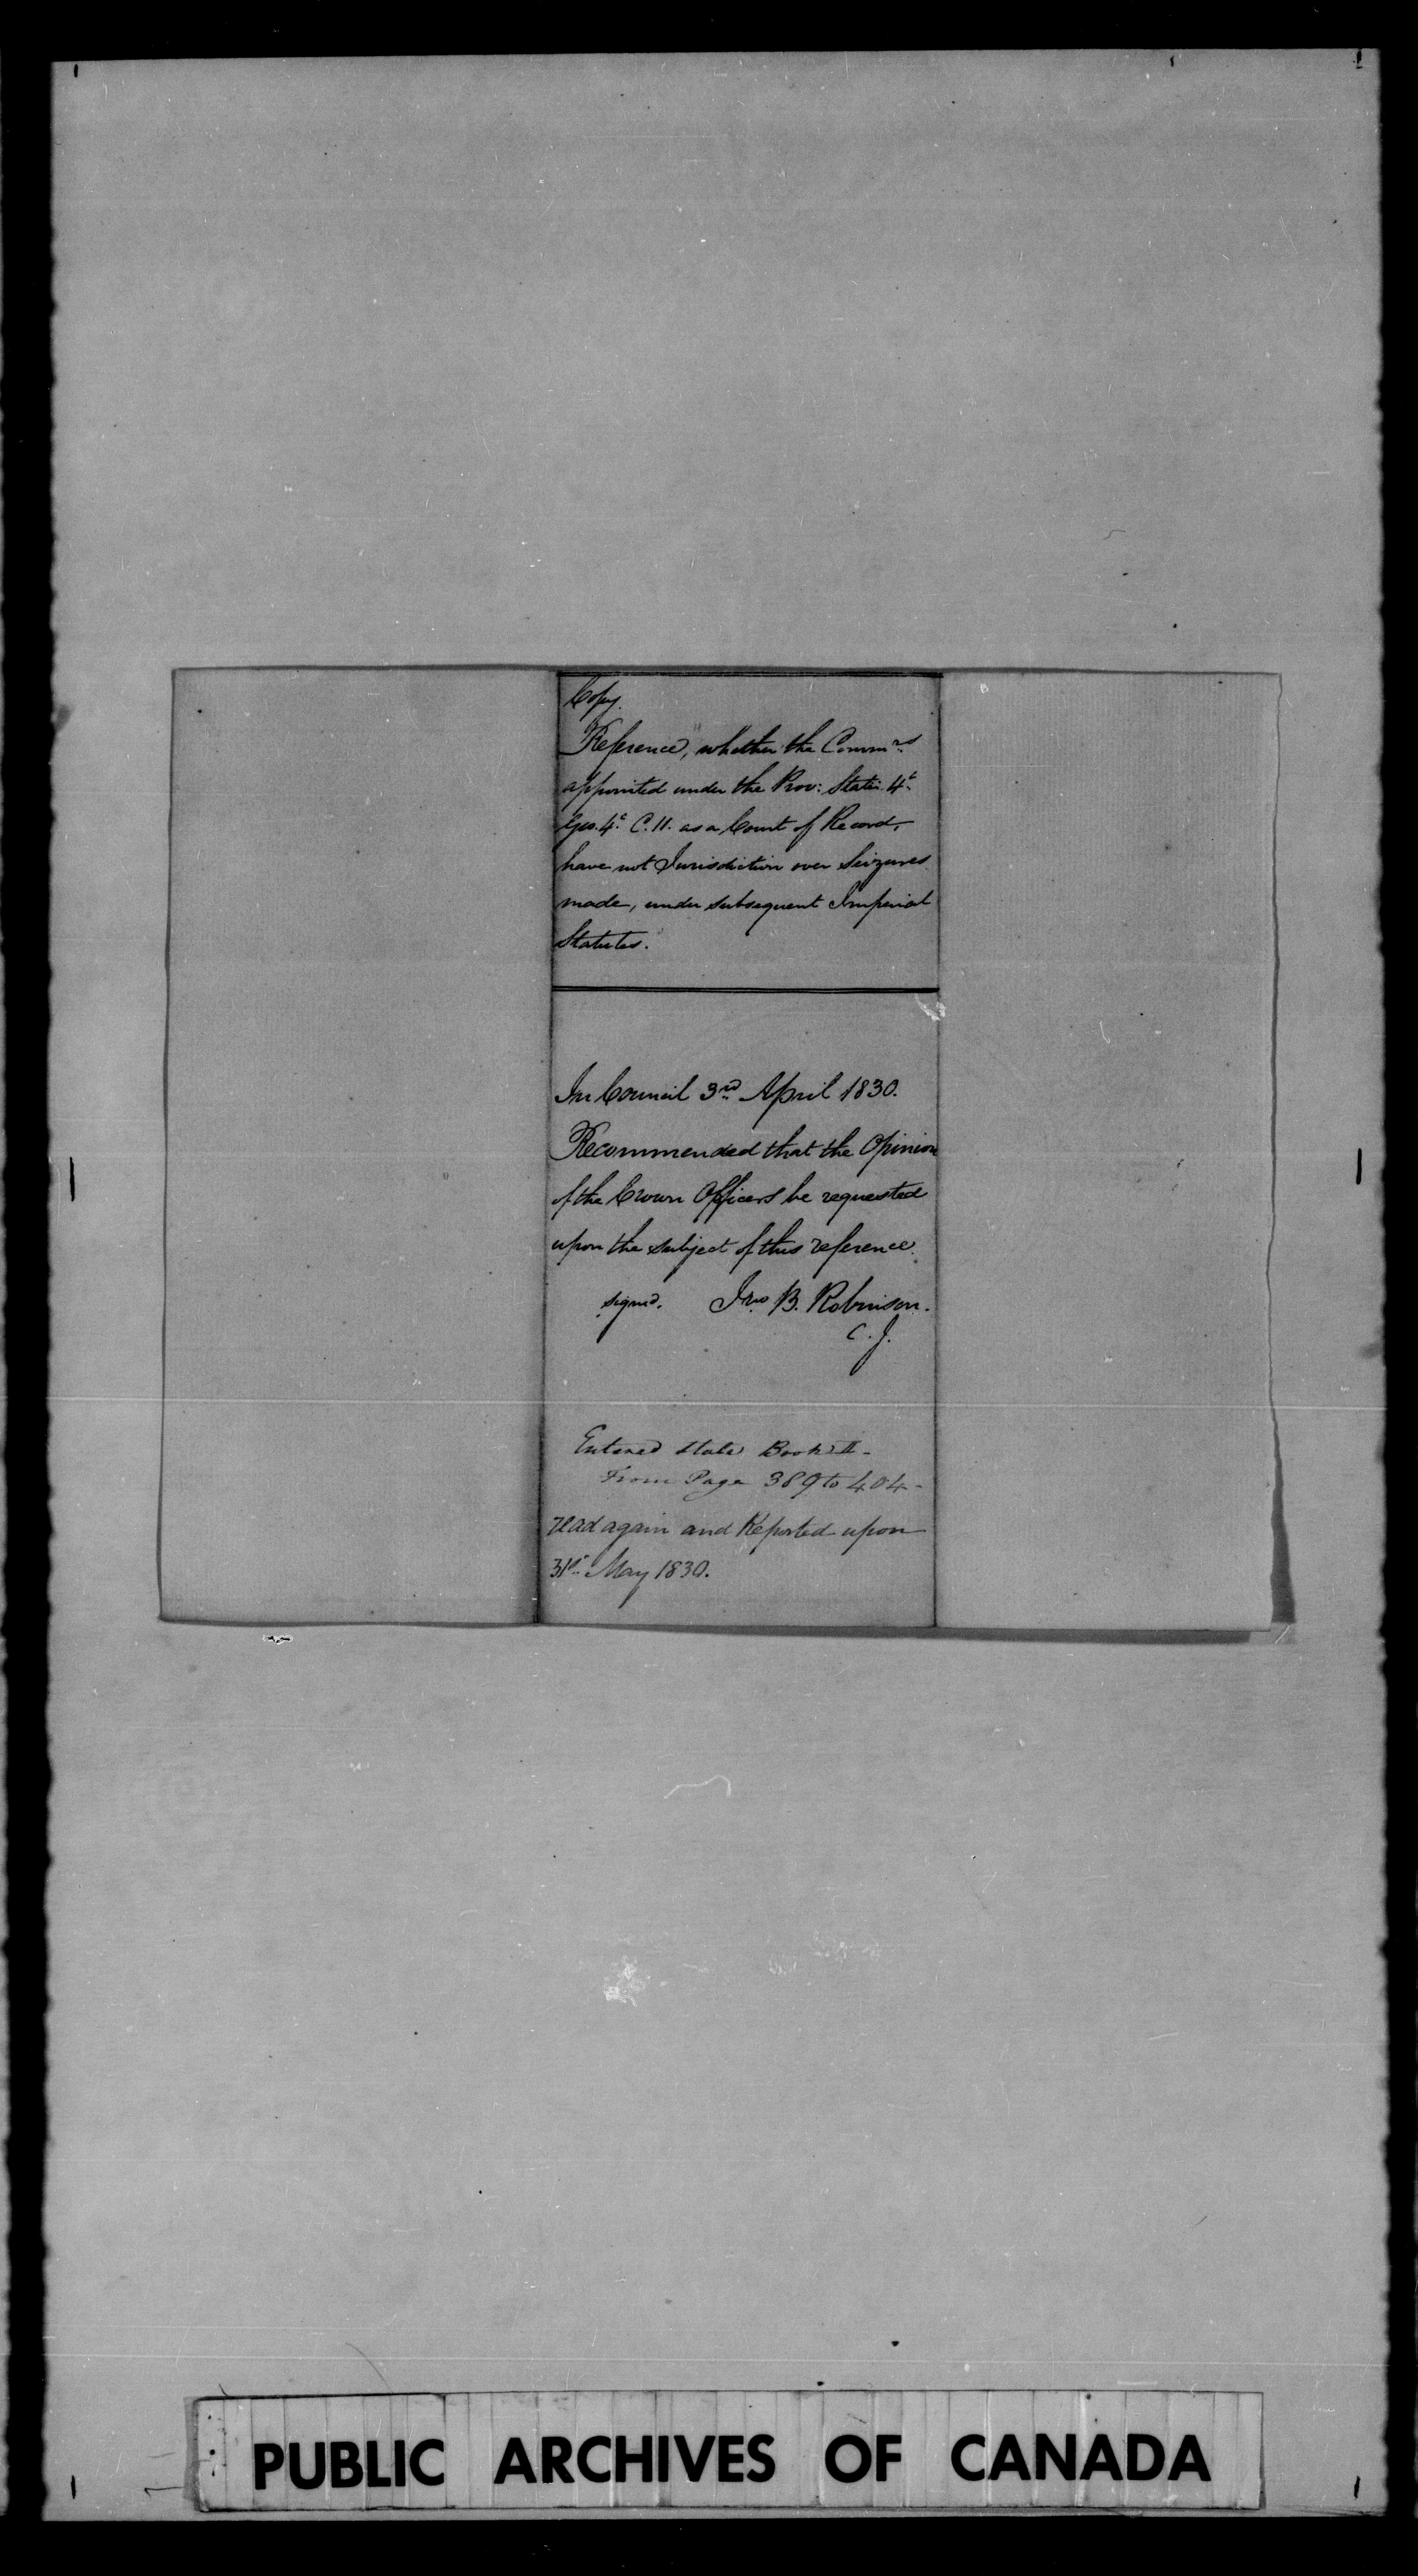 Copy.
Reference, whether the Commrs
appointed under the Prov: Statu: 4th
Geo. 4th C. 11. as a Court of Record,
have not Jurisdiction over Seizures
made, under subsequent Imperial
Statutes.
In Council 3rd April 1830.
Recommended that the Opinion
of the Crown Officers be requested
upon the subject of this reference.
signed. Jno B. Robinson.
C. J.
Entered State Book II -
From Page 389 to 404 -
read again and Reported upon
31st May 1830.
PUBLIC ARCHIVES OF CANADA